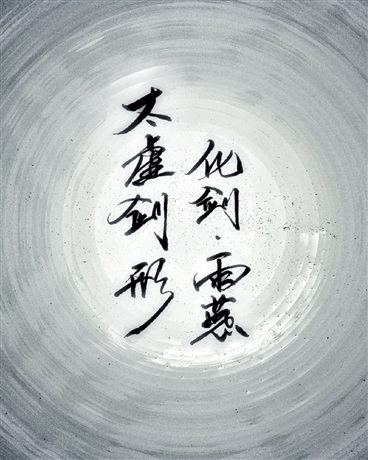 太虚剑形
化剑·雨燕